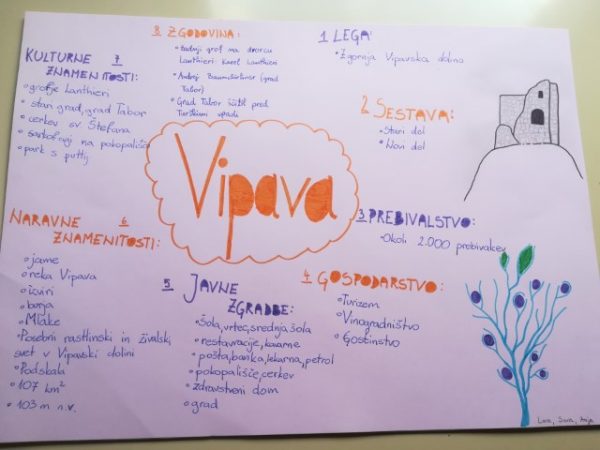 Vipava
1 LEGA
• Zgornja Vipavska dolina
2 SESTAVA:
• Stari del
• Novi del
3 PREBIVALSTVO:
• Okoli 2.000 prebivalcev
4 GOSPODARSTVO:
• Turizem
• Vinogradništvo
• Gostinstvo
5 JAVNE
ZGRADBE:
• Šola, vrtec, srednja šola
• restavracije, kavarne
• pošta, banka, lekarna, petrol
• pokopališče, cerkev
• zdravstveni dom
• grad
NARAVNE 6
ZNAMENITOSTI:
• jame
• reka Vipava
• izviri
• burja
• Mlake
• Posebni rastlinski in živalski
svet v Vipavski dolini
• Podskala
• 107 km²
• 103 m n.v.
KULTURNE 7
ZNAMENITOSTI:
• grofje Lanthieri
• stari grad, grad Tabor
• cerkev sv Štefana
• sarkofagi na pokopališču
• park s putti
8 ZGODOVINA:
• Zadnji grof na dvorcu
Lanthieri Karel Lanthieri
• Andrej Baumkirchner (grad
Tabor)
• Grad Tabor ščitil pred
Turškimi vpadi
Lara, Sara, Anja